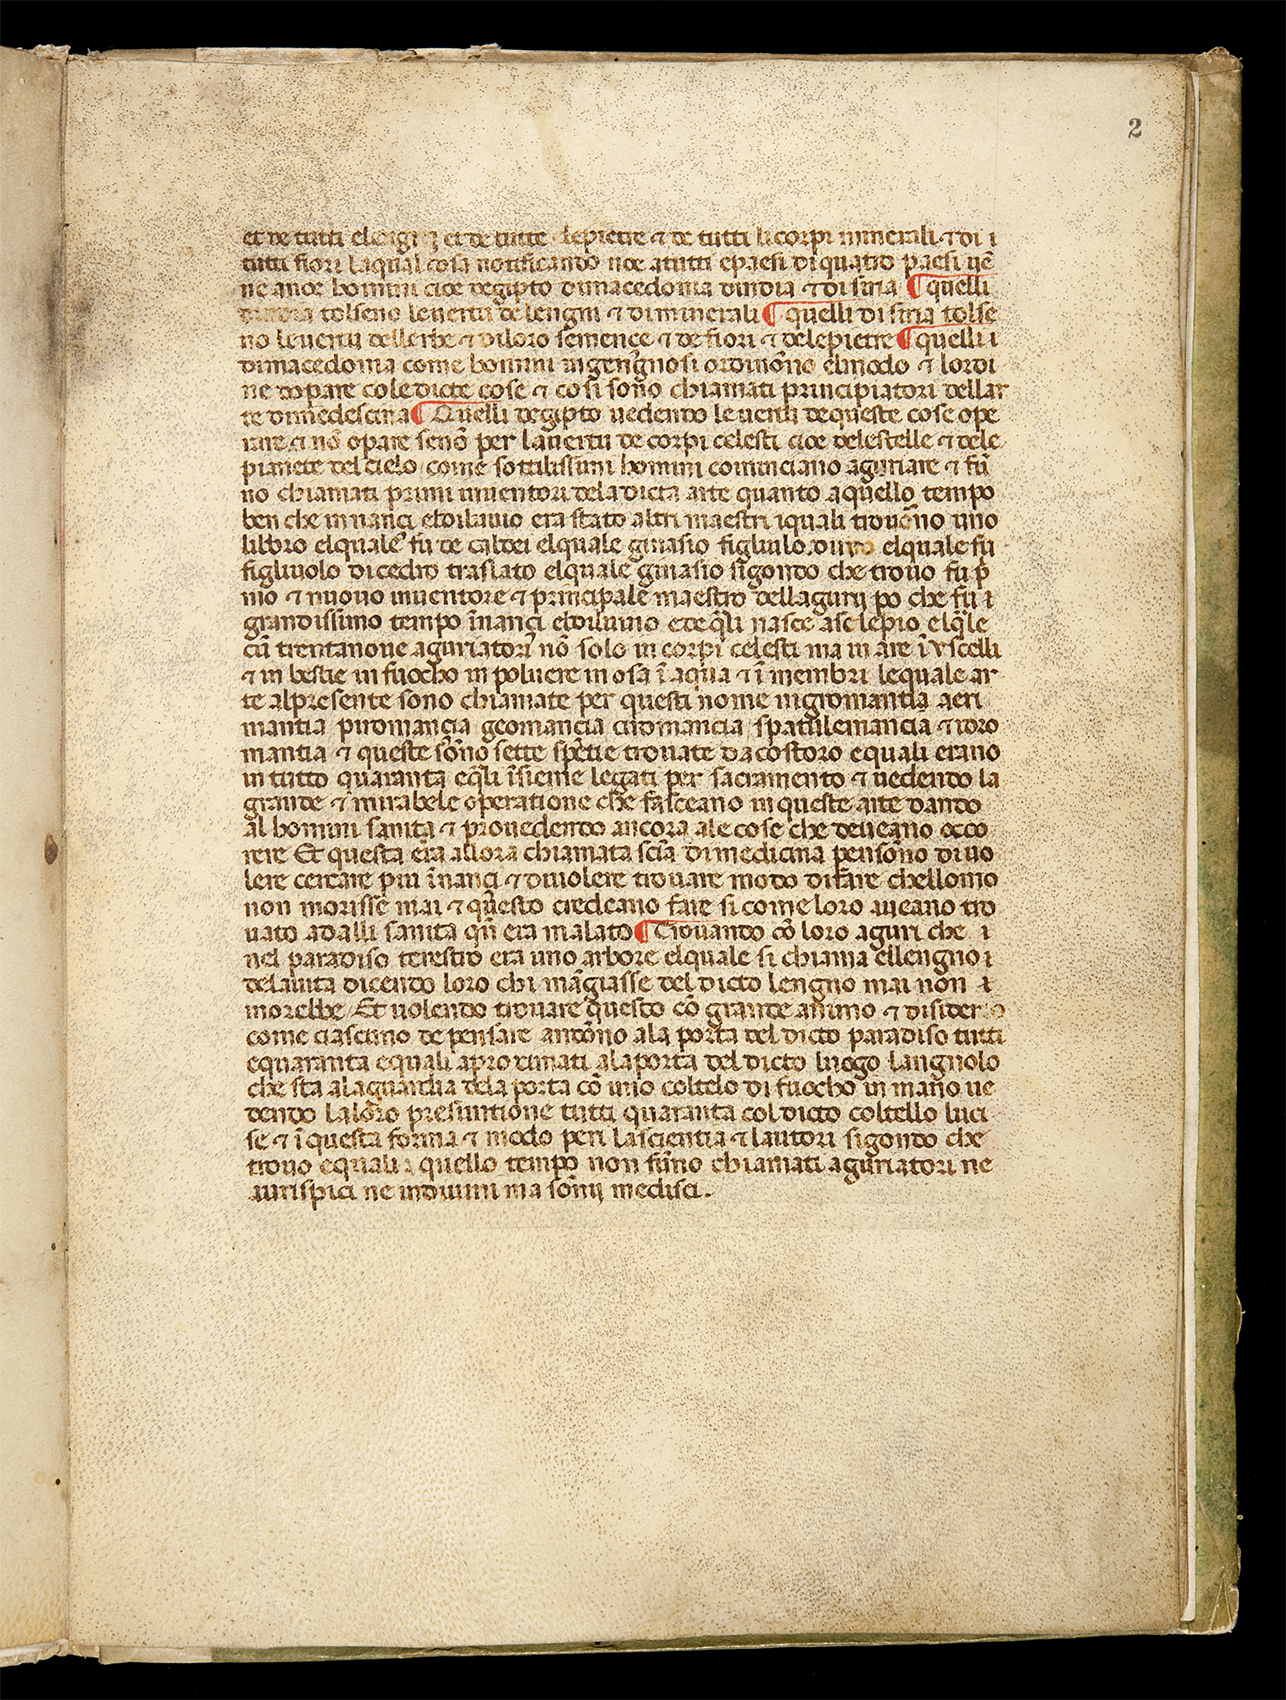 2
et de tutti et de tutte lepietre ⁊ de tutti li corpi minerali ⁊ di i
tutti fiori laqual cosa notificando noe atutti epaesi di quatro paesi uē
ne ançe homini cioe degipto dimacedonia dindia ⁊ di siria ¶ quelli
dindia tolseno leuertu de lengni ⁊ di minerali ¶ quelli di siria tolse
no leuertu dellerbe ⁊ diloro semençe ⁊ de fiori ⁊ delepietre ¶ quelli i
dimacedonia come homini ingengnosi ordinōno elmodo ⁊ lordi
ne dopare coledicte cose ⁊ cosi sono chiamati principiatori dellar
te dimedescina ¶ Quelli degipto uedendo leuertu dequeste cose ope
rare ⁊ nō opare senō per lauertu de corpi celesti cioe delestelle ⁊ dele
pianete del cielo come sottilissimi homini cominciano aguriare ⁊ fū
no chiamati primi inuentori dela dicta arte quanto aquello tempo
ben che innançi eldiluuio era stato altri maestri iquali trouōno uno
libbro elquale fu de caldei elquale ginasio figliuolo elquale fu
figliuolo dicedro traslato elquale ginasio sigondo che trouo fu p̄
mo ⁊ nuouo inuentore ⁊ principale maestro dellagurij po che fu i
grandissimo tempo īnançi eldiluuio ede q̄li nasce asclepio elq̄le
cū trentanoue aguriatori nō solo in corpi celesti ma in are ī vscelli
⁊ in bestie in fuocho in poluere in osa ī aqua ⁊ ī membri lequale ar
te alpresente sono chiamate per questi nome nigromantia aeri
mantia piromançia geomancia ciromancia spatulemancia ⁊ idro
mantia ⁊ queste sōno sette spētie trouate da costoro equali erano
in tutto quaranta eq̄li īsieme legati per sacramento ⁊ uedendo la
grande ⁊ mirabele operatione che falceano in queste arte dando
al homini sanita ⁊ prouedendo ancora ale cose che deueano occo
rere Et questa era allora chiamata sciā di medicina pensōno diuo
lere cercare piu īnançi ⁊ diuolere trouare modo difare chellomo
non morisse mai ⁊ q̄uesto credeano fare si come loro aueano tro
uato adalli sanita qn̄ era malato ¶ Trouando cō loro aguri che i
nel paradiso terestro era uno arbore elquale si chiama ellengno i
delauita dicendo loro chi māgiasse del dicto lengno mai non i
morebbe Et uolendo trouare questo cō grande animo ⁊ disiderio
come ciascuno de pensare andōno ala porta del dicto paradiso tutti
equaranta equali aproximati alaporta del dicto luogo langnolo
che sta alaguardia dela porta cō uno coltelo di fuocho in mano ue
dendo laloro presuntione tutti quaranta coldicto coltello luci
se ⁊ ī questa forma ⁊ modo peri lascientia ⁊ lautori sigondo che
trouo equali i quello tempo non fūno chiamati aguriatori ne
aurispici ne indiuini ma sōmij medisci.